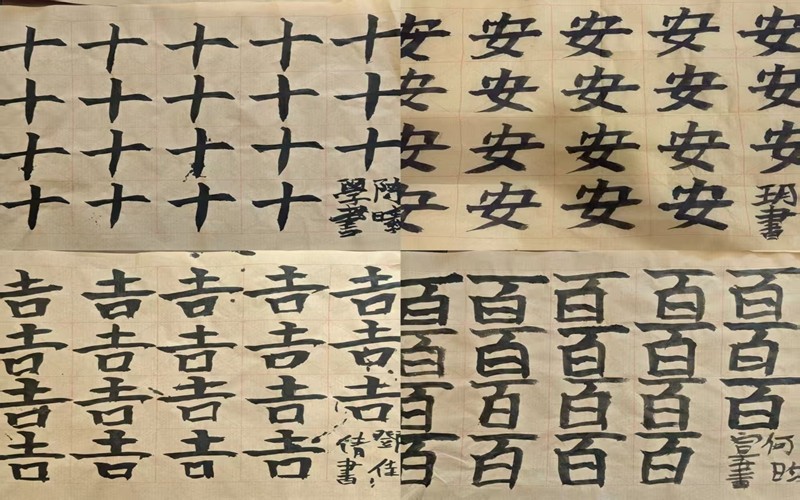 十十十十十
十十十十十
十十十十十
十十十十
陳曦
學書
安安安安安
安安安安安
安安安安安
安安安安
玥書
吉吉吉吉吉
吉吉吉吉吉
吉吉吉吉吉
吉吉吉吉
鄧佳
倩書
百百百百百
百百百百百
百百百百百
百百百百
何
宣書